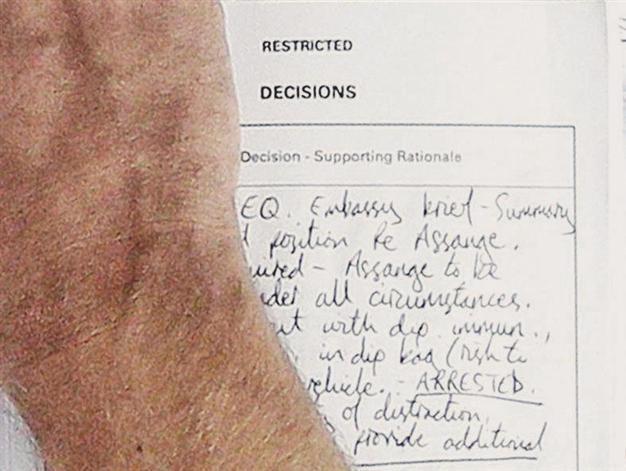 RESTRICTED
DECISIONS
Decision - Supporting Rationale
EQ. Embassy brief - Summary
position Re Assange.
- Assange to be
all circumstances.
with dip immun.,
in dip bag (right to
vehicle. - ARRESTED.
of distraction,
provide additional